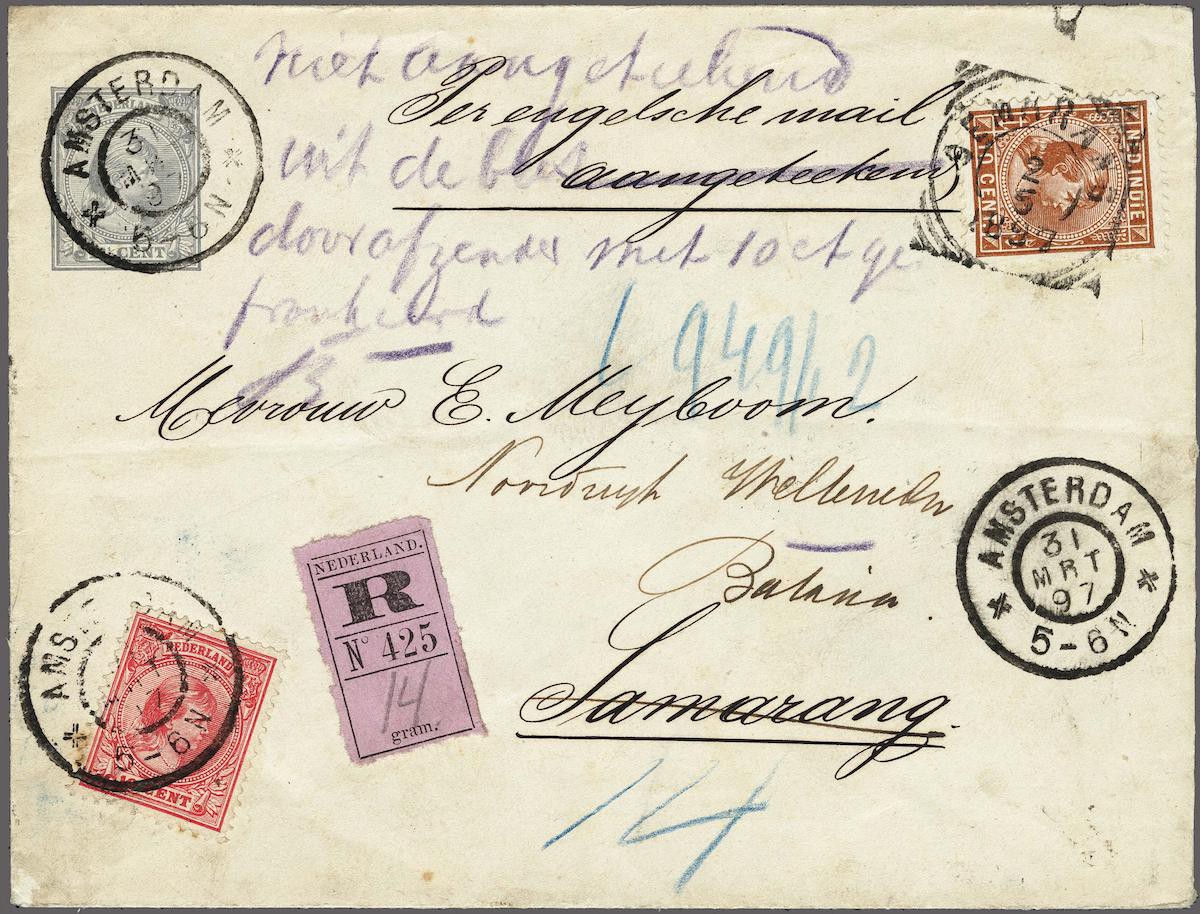 niet aangeteekend
Per engelsche mail
uit de bus
aangeteekend
door afzender met 10 ct ge
frankeerd
NEDERLAND
CENT
AMSTERDAM
5-6N
NED. INDIE
10 CENT
SEMARANG
1897
94942
Mevrouw E. Meyboom.
Noordwyk Weltevreden
Batavia.
Samarang.
NEDERLAND.
R
No 425
14
gram.
AMSTERDAM
31
MRT
97
5-6N
NEDERLAND
CENT
AMS
5-6N
14